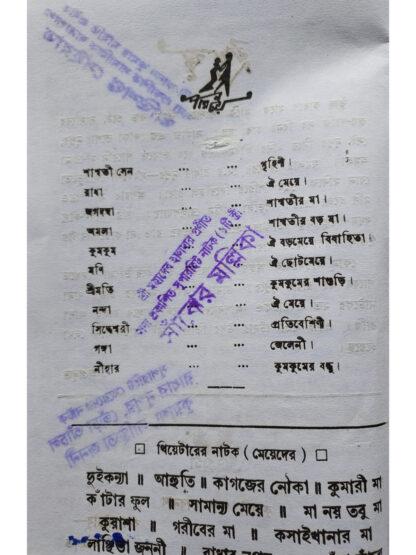 পরিচয়
শাশ্বতী সেন ... ... গৃহিণী।
রাধা ... ... ঐ মেয়ে।
জগদম্বা ... ... শাশ্বতীর মা।
অমলা ... ... শাশ্বতীর বড় মা।
কুমকুম ... ঐ বড়মেয়ে বিবাহিতা।
মণি ... ঐ ছোটমেয়ে।
শ্রীমতি ... কুমকুমের শাশুড়ি।
নন্দা ... ঐ মেয়ে।
সিদ্ধেশ্বরী ... ... প্রতিবেশিণী।
গঙ্গা ... ... জেলেনী।
নীহার ... ... কুমকুমের বন্ধু।
শ্রী মহাদেব হালদার প্রণীত
একাঙ্কিত সুপারহিট নাটক (১টি স্ত্রী)
সাঁঝের মল্লিকা
□ থিয়েটারের নাটক (মেয়েদের) □
দুইকন্যা ॥ আহুতি ॥ কাগজের নৌকা ॥ কুমারী মা
কাঁটার ফুল ॥ সামান্য মেয়ে ॥ মা নয় তবু মা
কুয়াশা ॥ গরীবের মা ॥ কসাইখানার মা
লাঞ্ছিতা জননী ॥